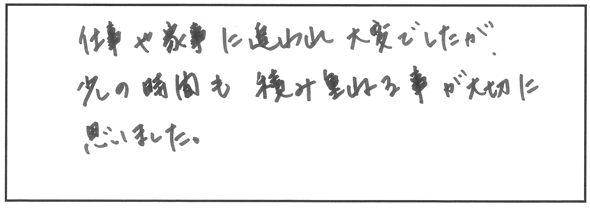 仕事や家事に追われ大変でしたが
少しの時間も積み重ねる事が大切に
思いました。